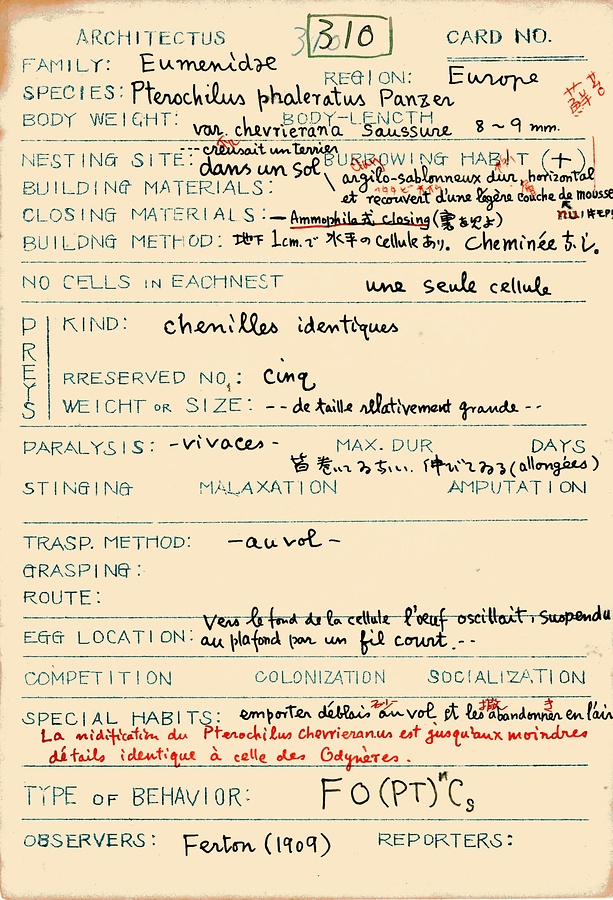 ARCHITECTUS 310 310 CARD NO.
FAMILY: Eumenidae
REGION: Europe
SPECIES: Pterochilus phaleratus Panzer
BODY WEIGHT: BODY-LENGTH
var. chevrieranа Saussure 8~9 mm.
蘚 苔
NESTING SITE: --- creusait un terrier BURROWING HABIT (+)
dans un sol argilo-sablonneux dur, horizontal
BUILDING MATERIALS: et recouvert d'une légère couche de mousse
CLOSING MATERIALS: — Ammophila式 closing (裏を見よ)
BUILDNG METHOD: 地下 1cm.で 水平の cellule あり. Cheminée なし.
NO CELLS IN EACHNEST une seule cellule
PREYS
KIND: chenilles identiques
RRESERVED NO.: cinq
WEICHT OR SIZE: -- de taille rélativement grande --
PARALYSIS: -vivaces- MAX. DUR DAYS
皆巻いてゐない. 伸びてゐる (allongées)
STINGING MALAXATION AMPUTATION
TRASP. METHOD: — au vol —
GRASPING:
ROUTE:
Vers le fond de la cellule l'oeuf oscillait, suspendu
EGG LOCATION: au plafond par un fil court. --
COMPETITION COLONIZATION SOCIALIZATION
SPECIAL HABITS: emporter déblais au vol et les abandonner en l'air
La nidification du Pterochilus chevrieranus est jusqu'aux moindres
détails identique à celle des Odynères.
TYPE OF BEHAVIOR: FO(PT)ⁿCs
OBSERVERS: Ferton (1909) REPORTERS: